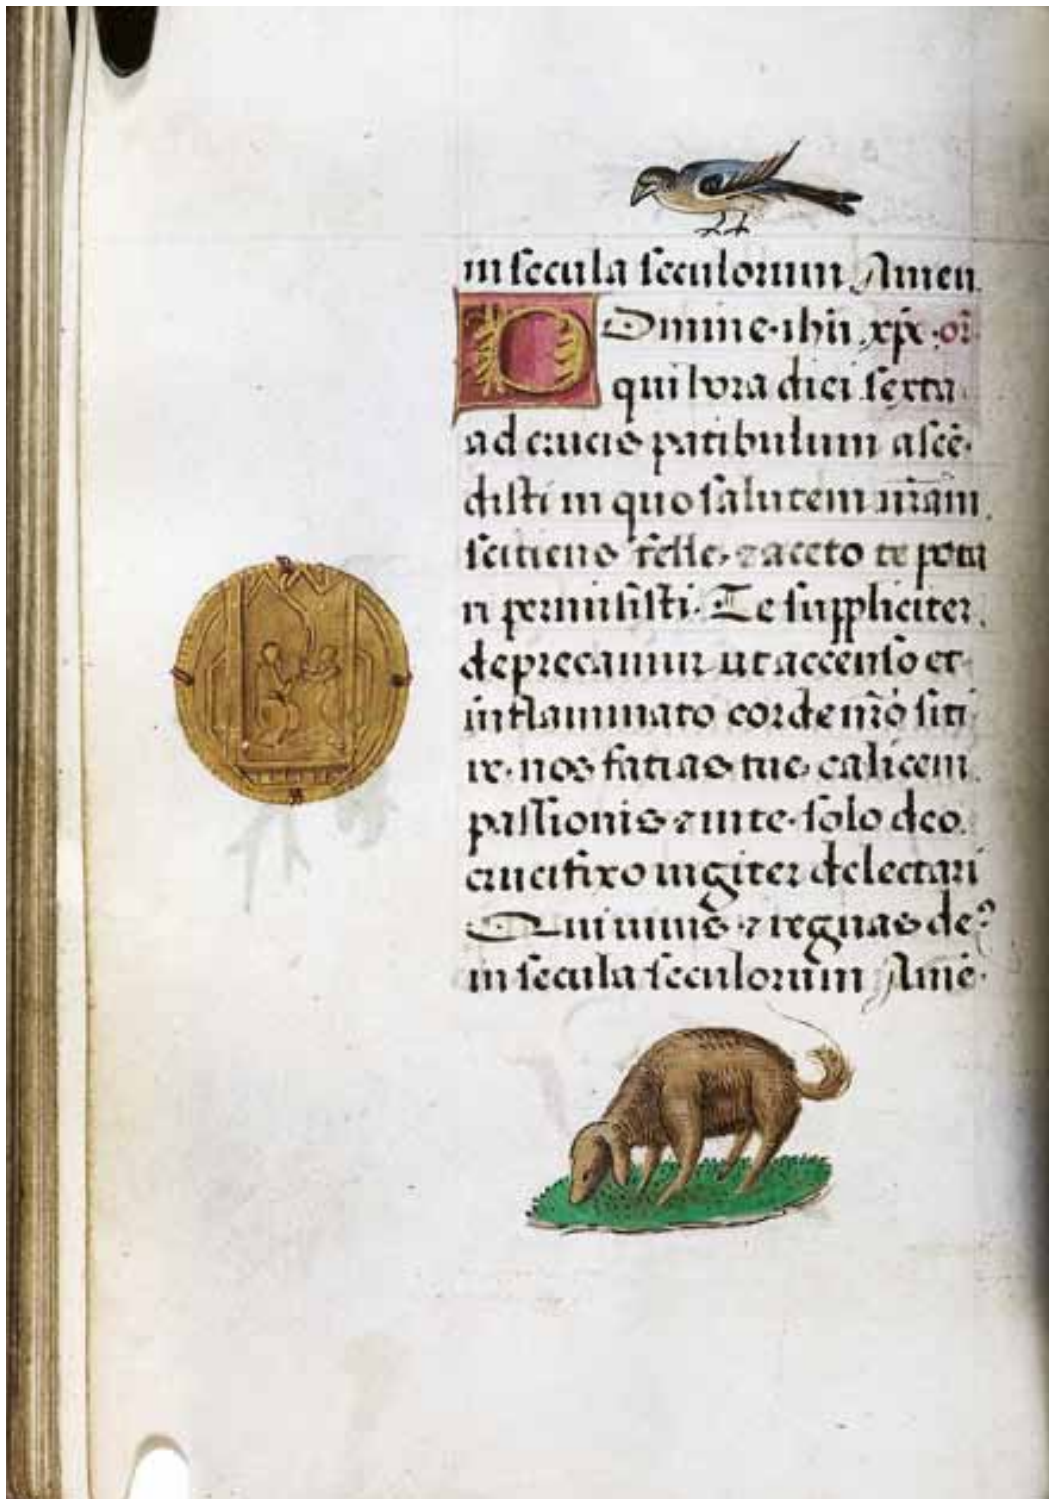 in secula seculorum Amen
Domine ihũ xp̃e or̃
qui hora diei sexta
ad crucis patibulum ascẽ
disti in quo salutem nr̃am
sciciens felle ⁊ aceto te pota
ri permisisti. Te suppliciter
deprecamur ut accenso et
inflammato corde nr̃o siti
re nos facias tue calicem
passionis ⁊ in te solo deo
crucifixo iugiter delectari
Qui vivis ⁊ regnas de⁹
in secula seculorum Amẽ